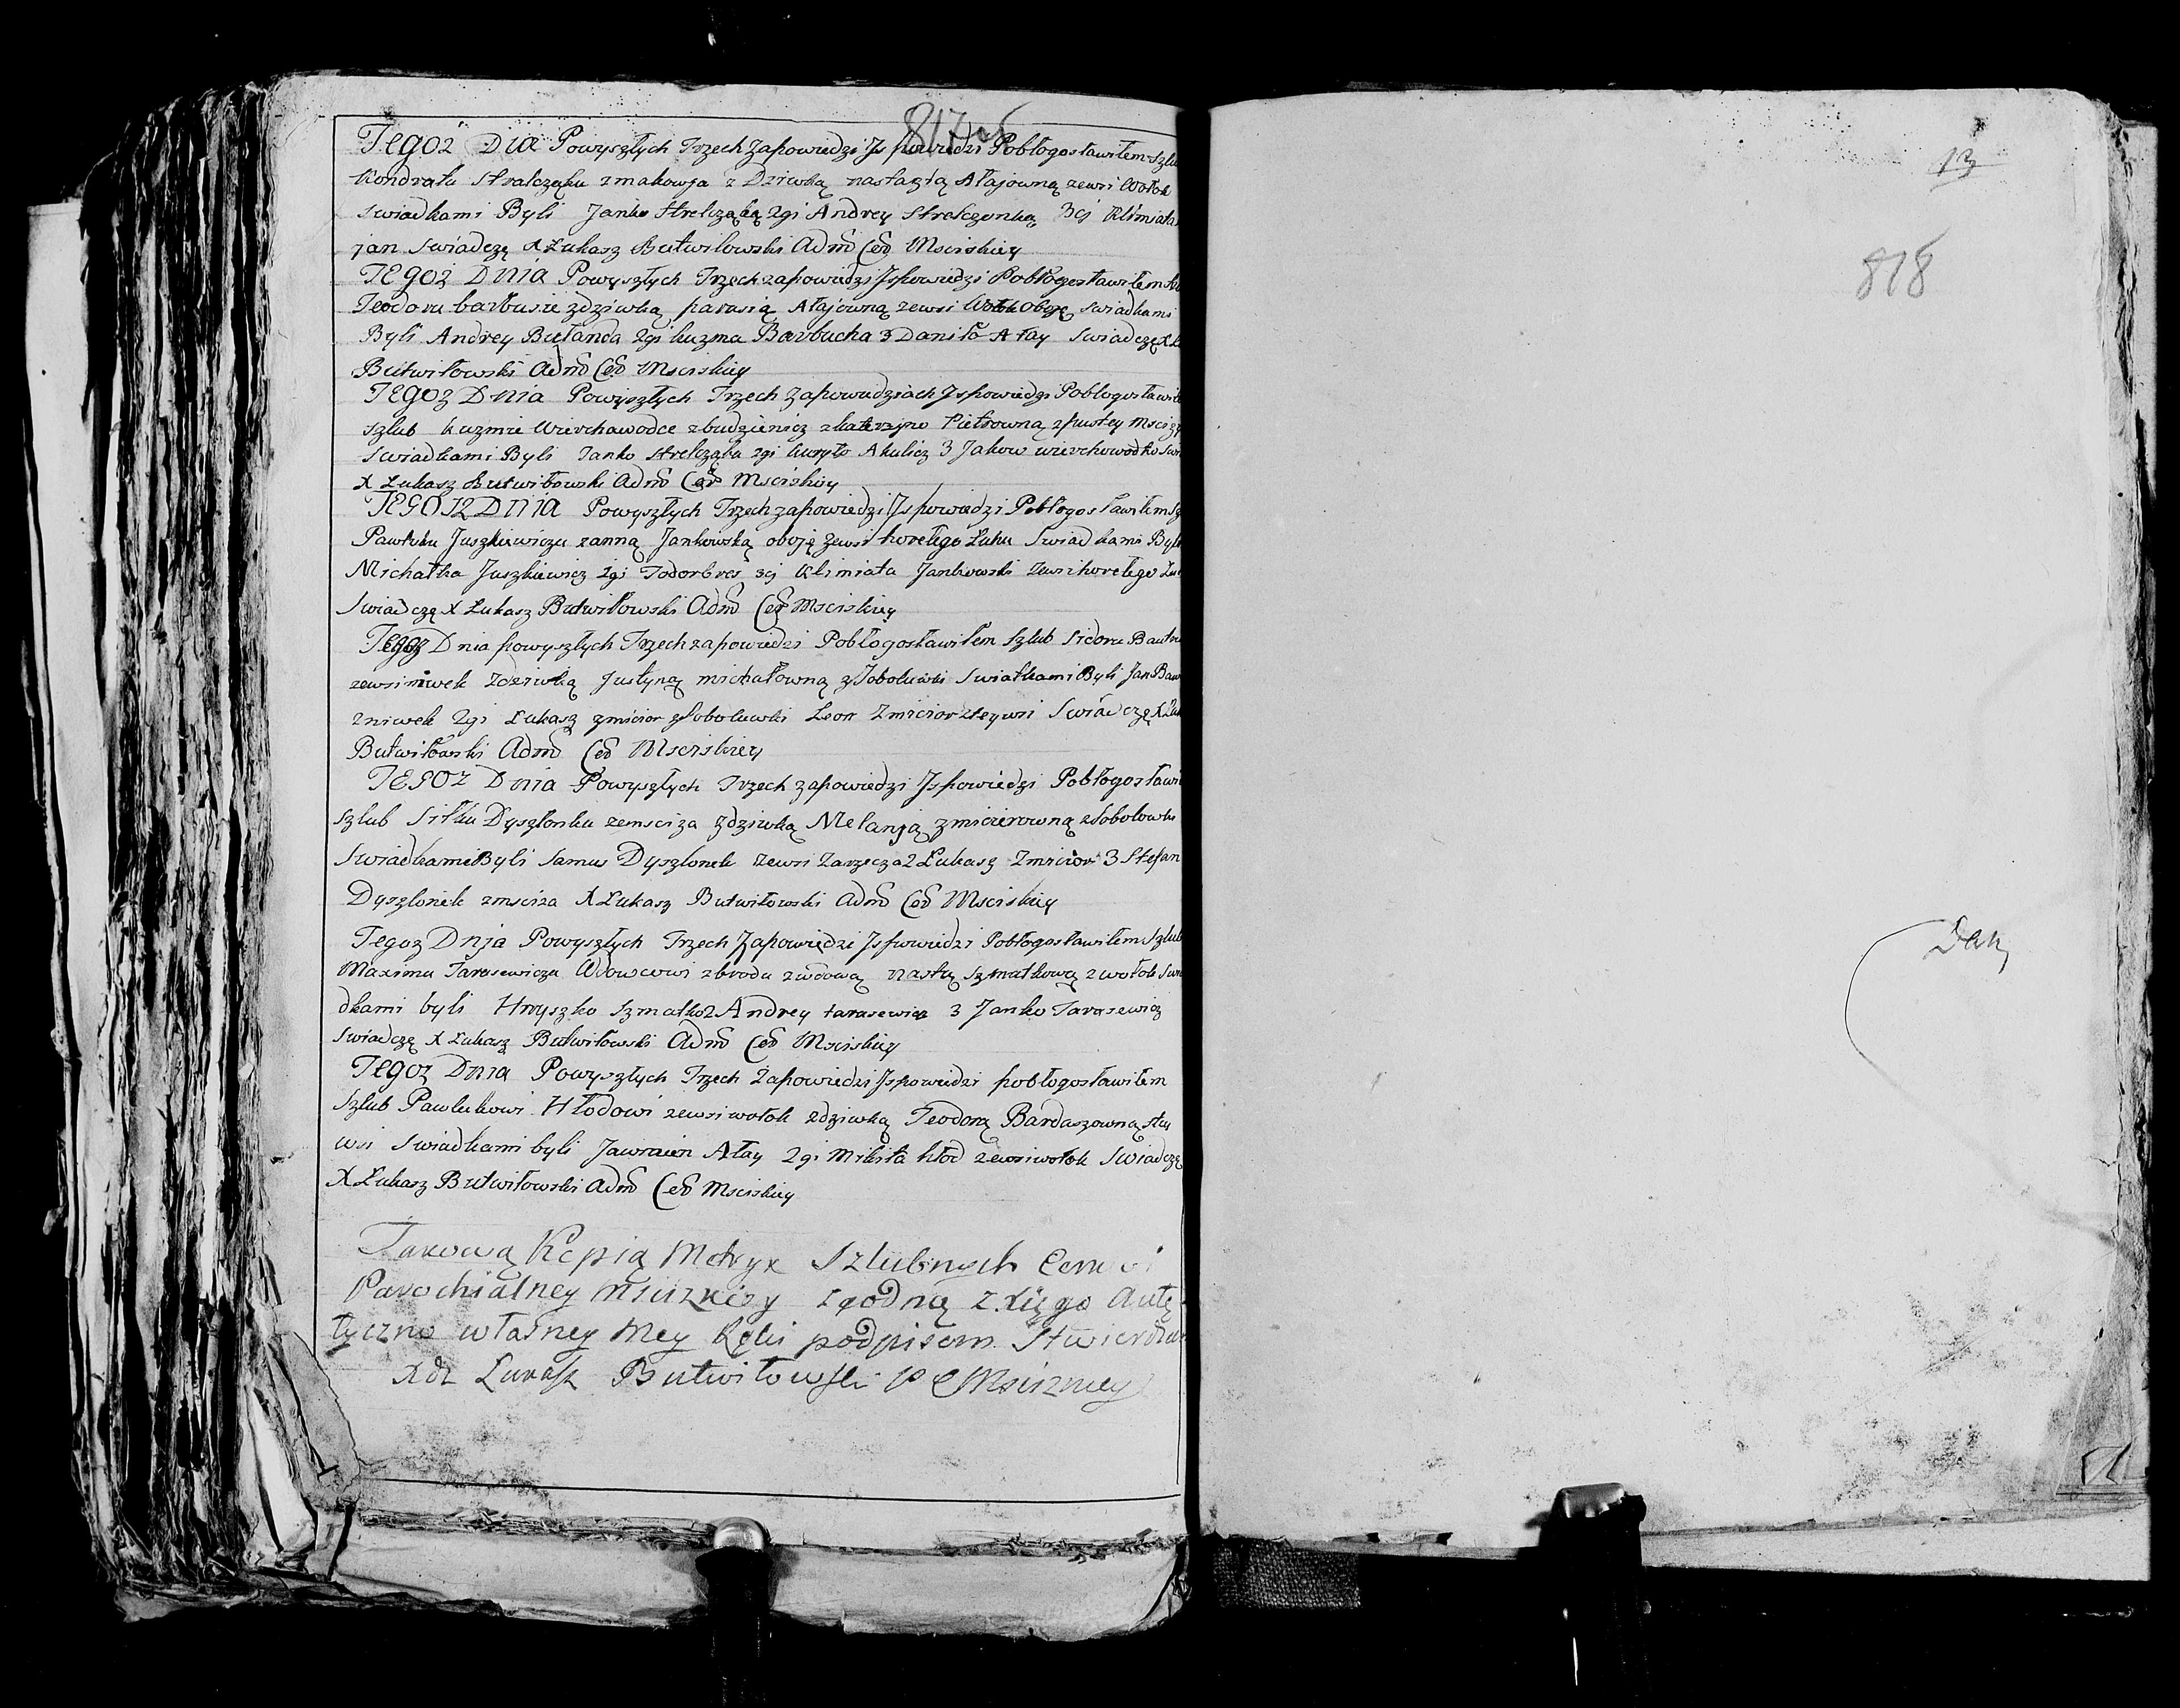 817об
Tegoż Dia Powyszłych Trzech Zapowiedzi Jspowiedzi Pobłogosławiłem Szlu
Kondratu Stralczęku zmakowja z Dziwką nastazią Ałajowną zewsi Wołok
Swiadkami Byli Janko Strelcząką 2gi Andrey Stralczonką 3cj Klimiata
jan Swiadczę X Łukasz Butwiłowski Adm Cer Msciskiey
TEgoż Dnia Powyszłych Trzech zapowiedzi Jspowiedzi Pobłogosławiłem
Teodoru barbusie zdziwką parasią Ałajowną zewsi Wołok oboję swiadkami
Byli Andrey Bułanda 2gi kuzma Barbucha 3 Daniła Ałay Swiadczę X
Butwiłowski Adm Cer Msciskiey
TEgoz Dnia Powyszłych Trzech Zapowiedziach Jspowiedzi Pobłogosławił
szlub Kuzmie Wierchawodce zbudzienicz zkaterzyno Pietrowną zpustey
Swiadkami Byli Janko Strelczęka 2gi kuryło Akulicz 3 Jakow wierchowodko
X Łukasz Butwiłowski Adm Cer Msciskiey
TEGOZ Dnia Powyszłych Trzech zapowiedzi Jspowiedzi Pobłogosławiłem
Pawluku Juszkiewiczu zanną Jankowską oboję zewsi horełego Łuhu Swiadkami Byli
Michałka Juszkiewicz 2gi Todor 3cj Klimiata Jankowski zewsi horełego
Swiadczę X Łukasz Butwiłowski Adm Cer Msciskiey
Tegoz Dnia powyszłych Trzech zapowiedzi Pobłogosławiłem Szlub Sidoru
zewsi niwek Zdziwką Justyną michałowną z Sobolewki Swiatkami Byli Jan
zniwek 2gi Łukasz zmicior z Sobolewki Leon Zmicior Swiadczę X
Butwiłowski Adm Cer Msciskiey
TEGOZ Dnia Powyszłych Trzech zapowiedzi Jspowiedzi Pobłogosławi
Szlub Siłku Dyszlonku zemsciza zdziwką Melanją zmicierowną z Sobolowki
Swiadkami Byli Samus Dyszlonek zewsi Zarzecza 2 Łukasz Zmicior 3 Stefan
Dyszlonek zmsciza X Łukasz Butwiłowski Adm Cer Msciskiey
Tegoz Dnja Powyszłych Trzech Zapowiedzi Jspowiedzi Pobłogosławiłem Szlub
Maximu Tarasewiczu Wdowcowi zbrodu zwdową nastą Szmatkową z wołok
dkami byli Hryszko Szmatko 2 Andrey tarasewicz 3 Janko Tarasewicz
Swiadczę X Łukasz Butwiłowski Adm Cer Msciskiey
TEgoz Dnia Powyszłych Trzech Zapowiedzi Jspowiedzi pobłogosławiłem
Szlub Pawlukowi Hłodowi zewsi wołok zdziwką Teodorą Bardaszowną
wsi Swiadkami byli Ałay 2gi Mikita hłod zewsi wołok Swiadczę
X Łukasz Butwiłowski Adm Cer Msciskiey
Takową Kopią Metryk Szlubnych
Parochialney Msciżkiey zgodną z xięgo Autę
tyczno własney Mey Ręki podpisem Stwierdzam
Xdz Łukasz Butwiłowski
13
818